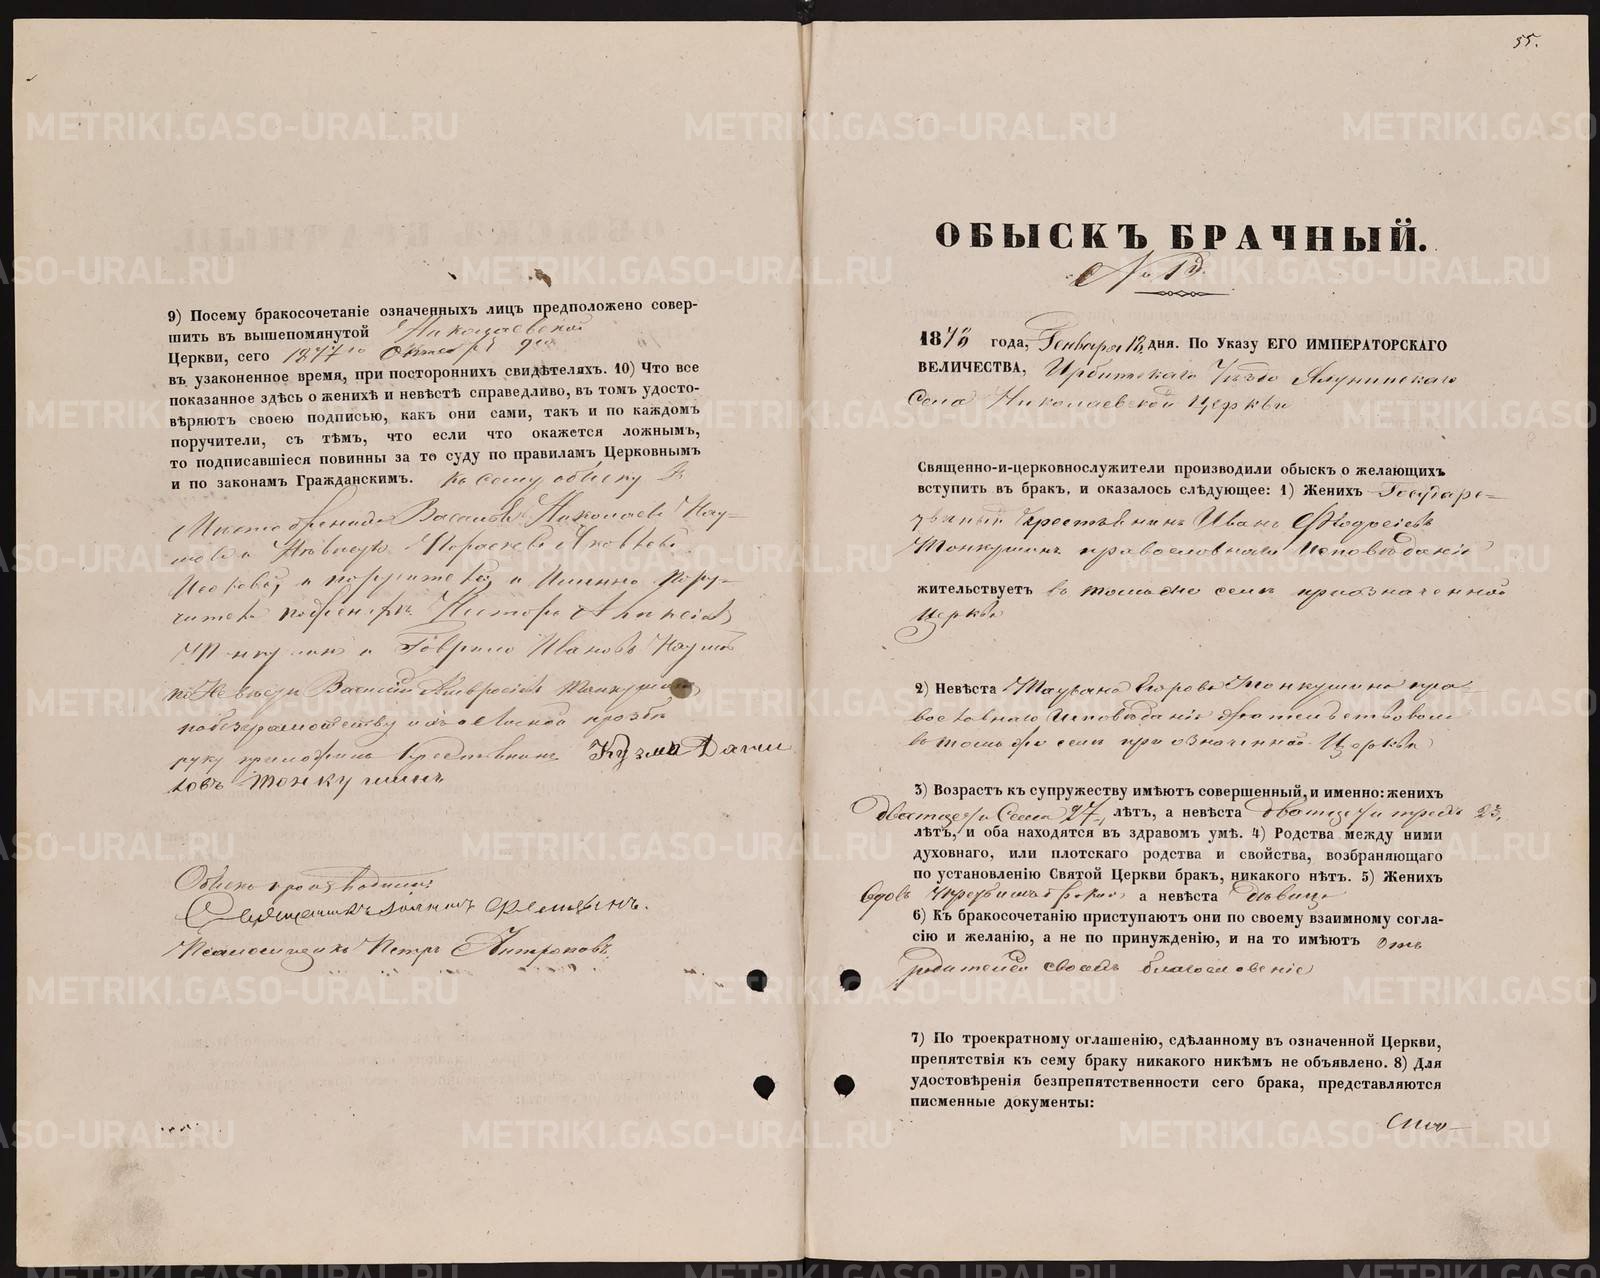 9) Посему бракосочетаніе означенныхъ лицъ предположено совер-
шить въ вышепомянутой Николаевской
Церкви, сего 1877го Октября 9го
въ узаконенное время, при постороннихъ свидѣтеляхъ. 10) Что все
показанное здѣсь о женихѣ и невѣстѣ справедливо, въ томъ удосто-
вѣряютъ своею подписью, какъ они сами, такъ и по каждомъ
поручители, съ тѣмъ, что если что окажется ложнымъ,
то подписавшіеся повинны за то суду по правиламъ Церковнымъ
и по законамъ Гражданскимъ. Къ сему обыску
Николаевъ
Яковлева
и поручителей, и именно пору-
Несторъ
и Гаврило Ивановъ
по невѣстѣ Василій Амвросіевъ Тонкушинъ
по безграмотству ихъ а
руку приложилъ Крестьянинъ Кузма Дани
ловъ Тонкушинъ
Обыскъ производили:
Священникъ Іоаннъ Флоринъ.
Псаломщикъ Петръ Антроповъ
55.
ОБЫСКЪ БРАЧНЫЙ.
№ 1й.
1878 года, Генваря 18 дня. По Указу ЕГО ИМПЕРАТОРСКАГО
ВЕЛИЧЕСТВА, Ирбитскаго Уѣзда Ялунинскаго
Села Николаевской Церкви
Священно-и-церковнослужители производили обыскъ о желающихъ
вступить въ бракъ, и оказалось слѣдующее: 1) Женихъ Государс-
твенный Крестьянинъ Иванъ Ѳеодосіевъ
Тонкушинъ православнаго Исповѣданія
жительствуетъ въ томъ же селѣ при означенной
Церкви
2) Невѣста Татьяна Егорова Тонкушина пра-
вославнаго Исповѣданія жительствовала
въ томъ же селѣ при означенной Церкви
3) Возрастъ къ супружеству имѣютъ совершенный, и именно: женихъ
Двадцати Семи 27, лѣтъ, а невѣста двадцати трехъ 23,
лѣтъ, и оба находятся въ здравомъ умѣ. 4) Родства между ними
духовнаго, или плотскаго родства и свойства, возбраняющаго
по установленію Святой Церкви бракъ, никакого нѣтъ. 5) Женихъ
вдовъ послѣ 1го брака а невѣста дѣвица
6) Къ бракосочетанію приступаютъ они по своему взаимному согла-
сію и желанію, а не по принужденію, и на то имѣютъ отъ
родителей своихъ благословеніе
7) По троекратному оглашенію, сдѣланному въ означенной Церкви,
препятствія къ сему браку никакого никѣмъ не объявлено. 8) Для
удостовѣренія безпрепятственности сего брака, представляются
писменные документы:
METRIKI.GASO-URAL.RU